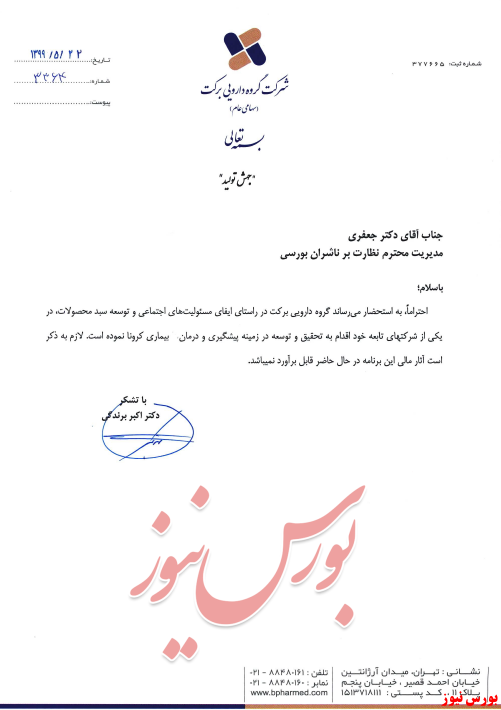 تاریخ: ۱۳۹۹/۵/۲۲
شماره: ۳۳۶۴
پیوست:
شماره ثبت: ۳۷۷۶۶۵
شرکت گروه دارویی برکت
(سهامی عام)
بسمه تعالی
"جهش تولید"
جناب آقای دکتر جعفری
مدیریت محترم نظارت بر ناشران بورسی
باسلام؛
احتراماً، به استحضار می‌رساند گروه دارویی برکت در راستای ایفای مسئولیت‌های اجتماعی و توسعه سبد محصولات، در
یکی از شرکتهای تابعه خود اقدام به تحقیق و توسعه در زمینه پیشگیری و درمان بیماری کرونا نموده است. لازم به ذکر
است آثار مالی این برنامه در حال حاضر قابل برآورد نمیباشد.
با تشکر
دکتر اکبر برندگی
بورس نیوز
نشانی: تهران، میدان آرژانتین
خیابان احمد قصیر، خیابان پنجم
پلاک ۱۱، کد پستی: ۱۵۱۳۷۱۸۱۱۱
تلفن: ۸۸۴۸۰۱۶۱ - ۰۲۱
نمابر: ۸۸۴۸۰۱۶۰ - ۰۲۱
www.bpharmed.com
بورس نیوز